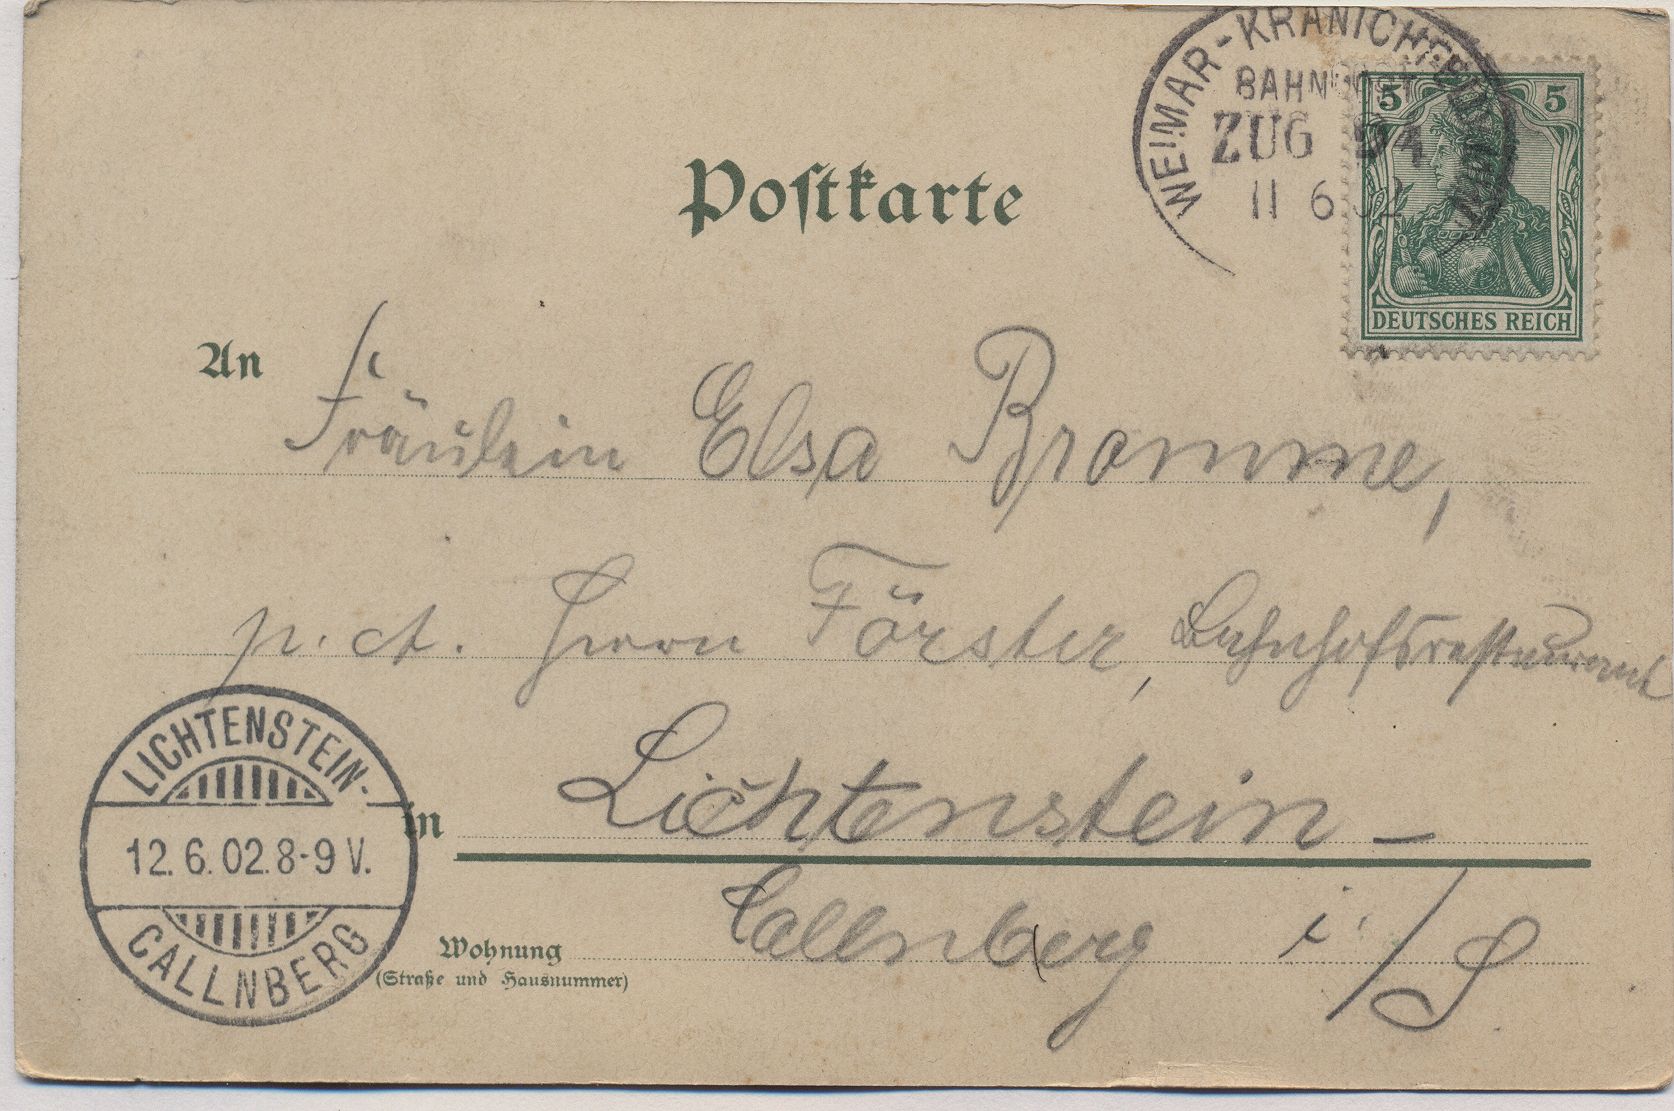 WEIMAR-KRANICHFELD
BAHNPOST
ZUG 94
11 6 02
5 5
DEUTSCHES REICH
Postkarte
An Fräulein Elsa Bromme,
p. A. Herrn Förster, Bahnhofsrestaurant
in Lichtenstein-
Callnberg i/S
Wohnung
(Straße und Hausnummer)
LICHTENSTEIN-
12.6.02.8-9 V.
CALLNBERG